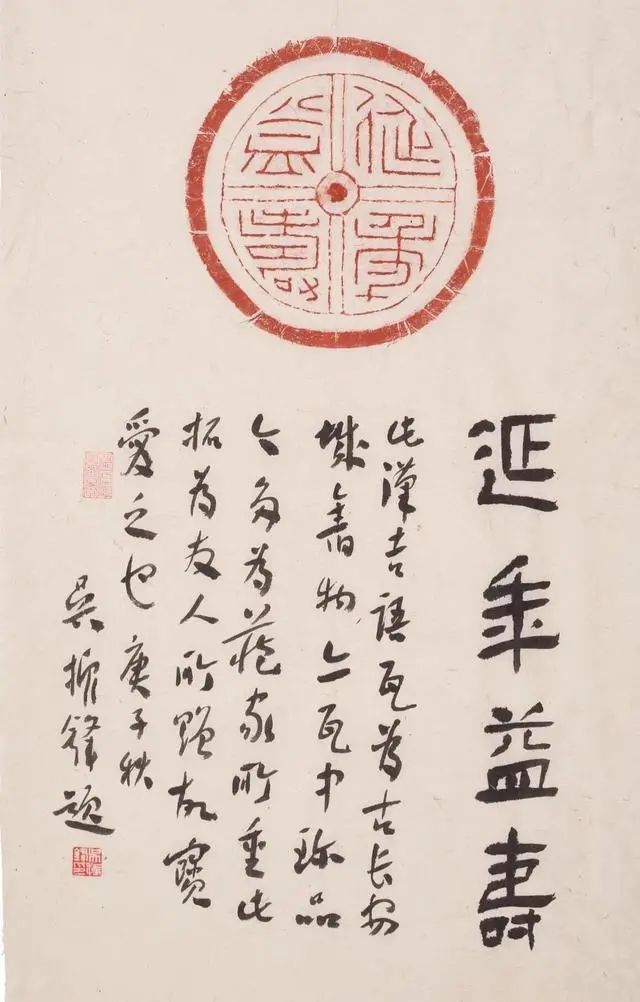 延年
益壽
延年益壽
此漢吉語瓦為古長安
城舊物亦瓦中珍品
今多為藏家所重此
拓為友人所贈故寶
愛之也庚子秋
吳振鋒題